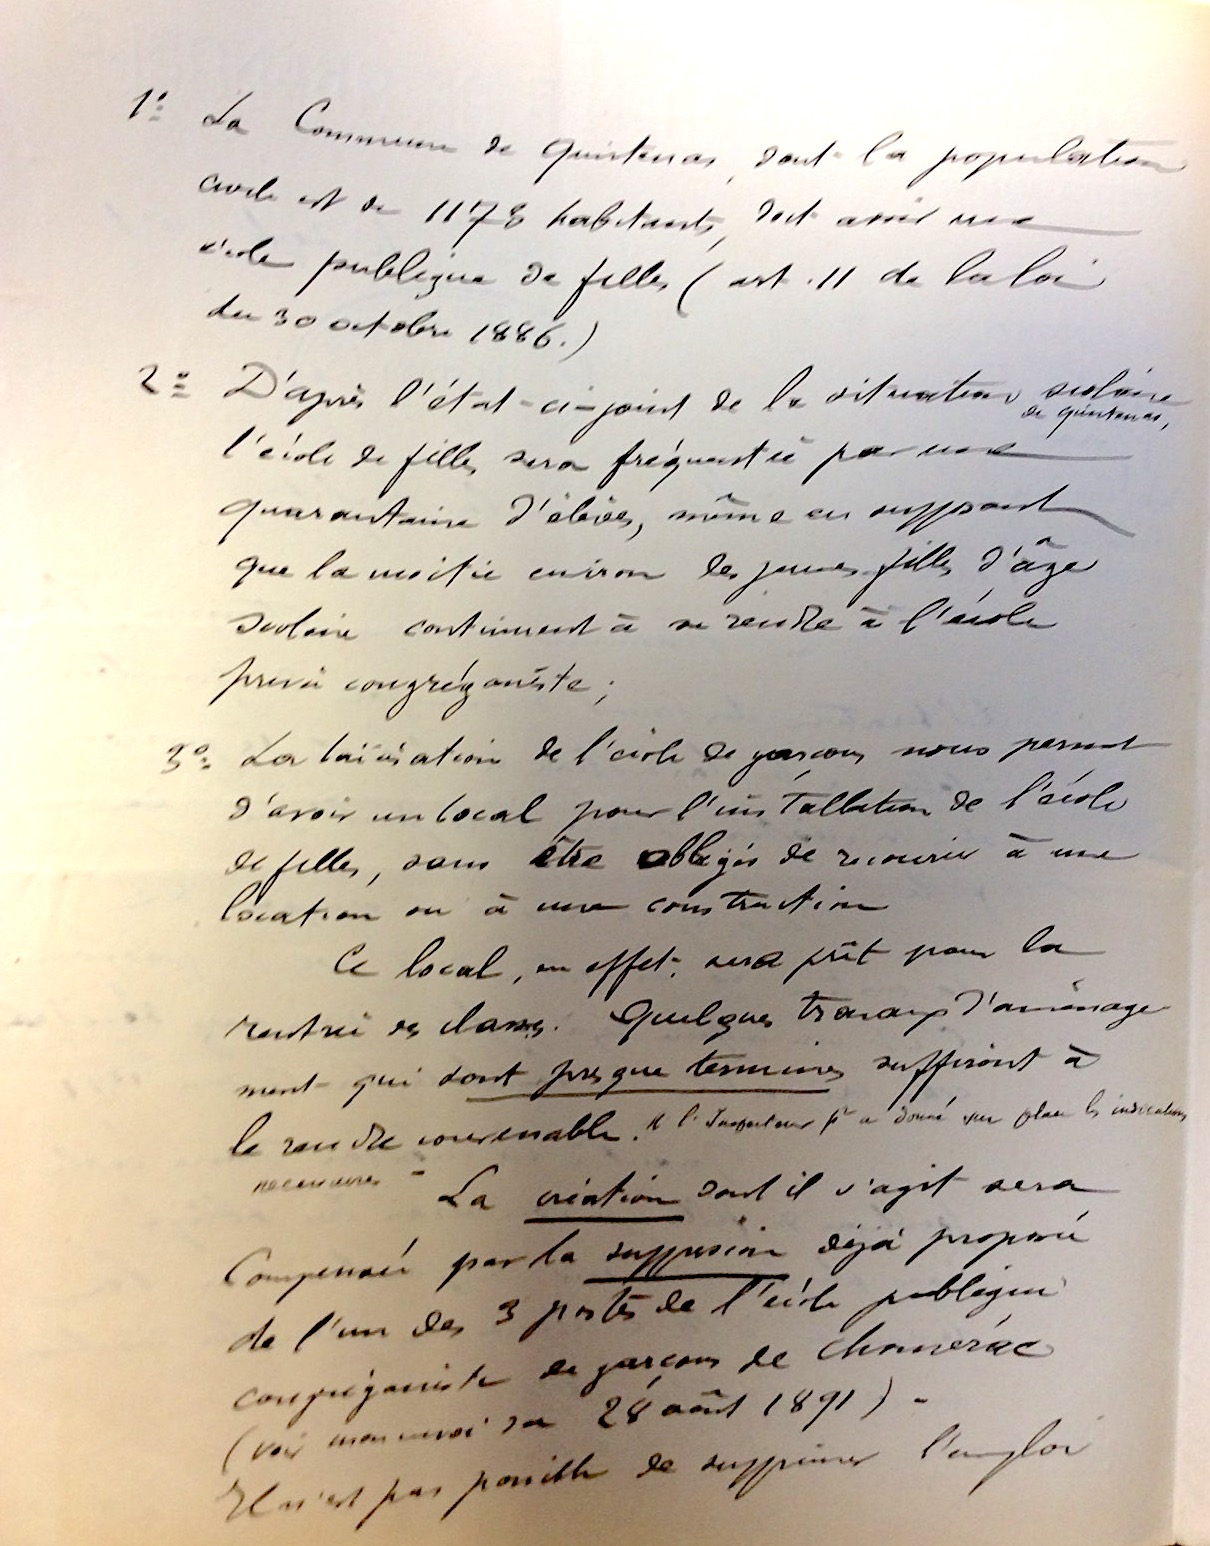 1º La Commune de Quintenas, dont la population
civile est de 1178 habitants, doit avoir une
école publique de filles (art. 11 de la loi
du 30 octobre 1886.)
2º D'après l'état-ci-joint de la situation scolaire
de Quintenas,
l'école de filles sera fréquentée par une
quarantaine d'élèves, même en supposant
que la moitié environ les jeunes filles d'âge
scolaire continuent à se rendre à l'école
privée congréganiste ;
3º La laïcisation de l'école de garçons nous permet
d'avoir un local pour l'installation de l'école
de filles, sans être obligés de recourir à une
location ou à une construction
Ce local, en effet, sera prêt pour la
rentrée des classes. Quelques travaux d'aménage
ment qui sont presque terminés suffiront à
le rendre convenable. M l'Inspecteur pre a donné sur place les indications
nécessaires -
La création dont il s'agit sera
Compensée par la suppression déjà proposée
de l'un des 3 postes de l'école publique
congréganiste de garçons de Chomérac
(voir mon envoi du 28 août 1891) -
Il n'est pas possible de supprimer l'emploi